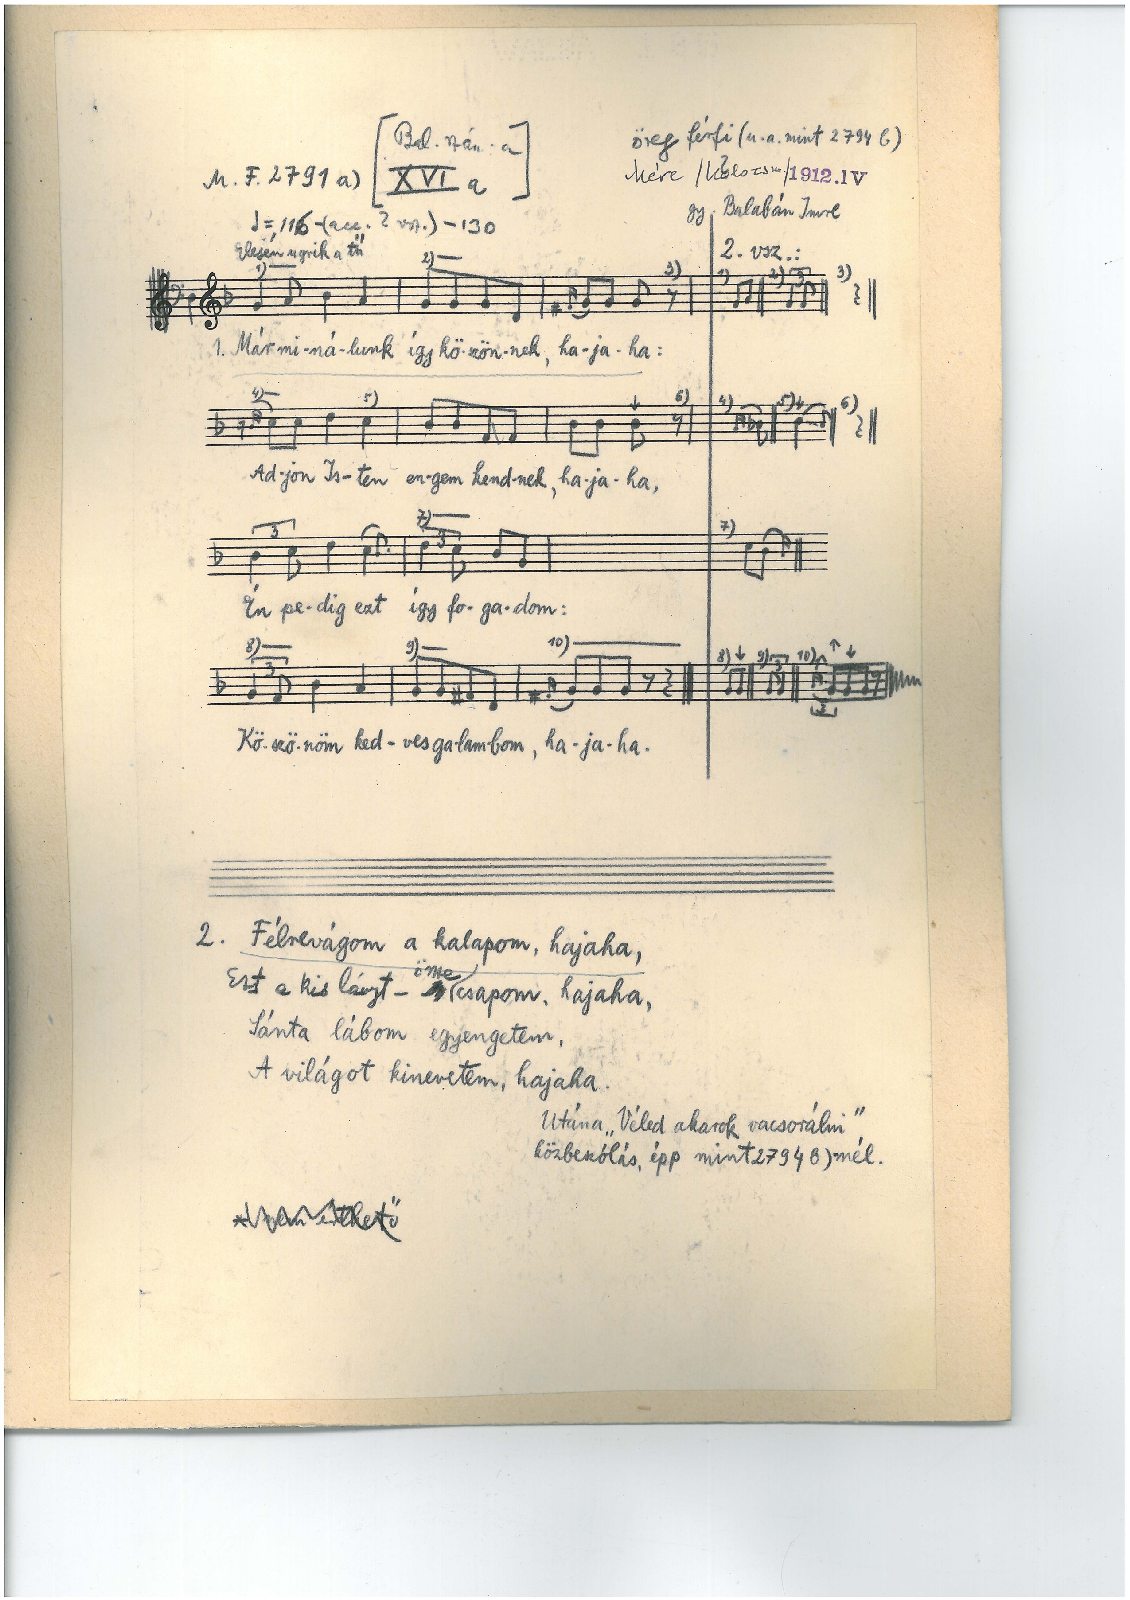 [Bal. szám. a
öreg férfi (u. a. mint 2794 b)
M. F. 2791 a) XVI a]
Mére /Kolozsm/ 1912.IV
gy. Balabán Imre
♩= 116 - (acc. 2 vsz.) - 130
Elején ugrik a tű
2. vsz.:
1) 2) 3) 1) 2) 3)
1. Már mi-ná-lunk így kö-szön-nek, ha-ja-ha:
4) 5) 6) 4) 5) 6)
Ad-jon Is-ten en-gem kend-nek, ha-ja-ha,
3 7) 3 7)
Én pe-dig ezt így fo-ga-dom:
8) 3 9) 10) 8) 9) 3 10)
Kö-szö-nöm ked-ves ga-lam-bom, ha-ja-ha.
2. Félrevágom a kalapom, hajaha,
Ezt a kis lányt - öme csapom, hajaha,
Sánta lábom egyengetem,
A világot kinevetem, hajaha.
Utána „Véled akarok vacsorálni"
közbeszólás, épp mint 2794 b)-nél.